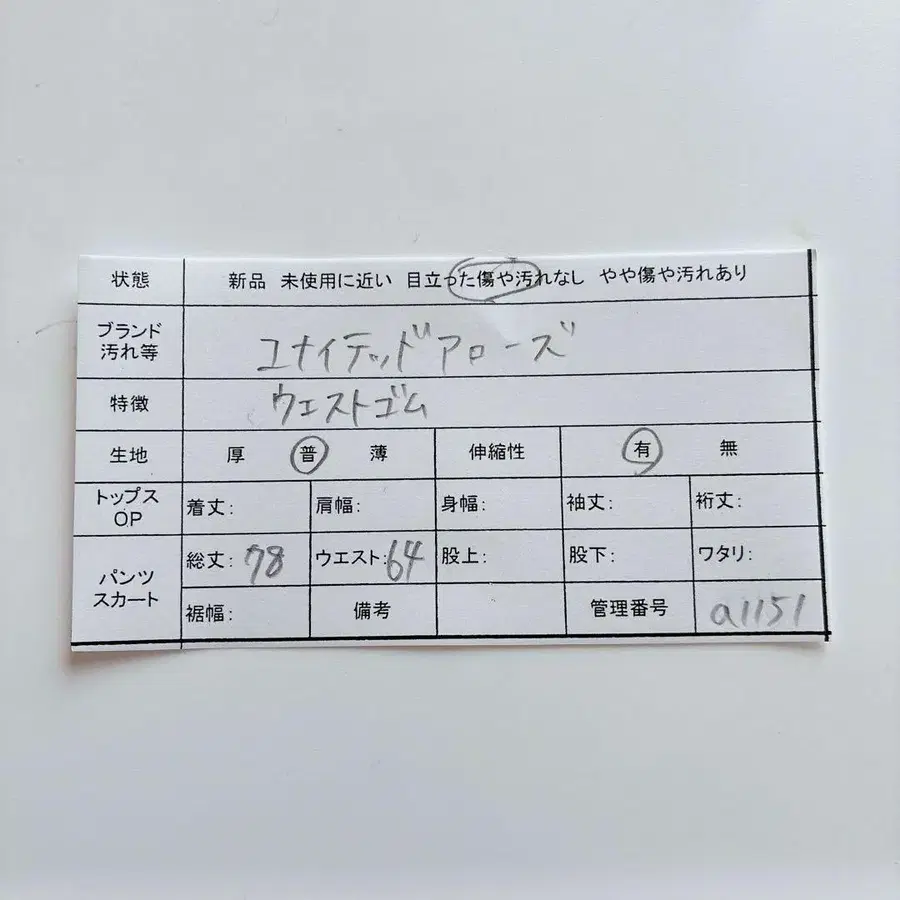 状態 新品 未使用に近い 目立った傷や汚れなし やや傷や汚れあり
ブランド
汚れ等 ユナイテッドアローズ
特徴 ウエストゴム
生地 厚 普 薄 伸縮性 有 無
トップス
OP 着丈: 肩幅: 身幅: 袖丈: 裄丈:
パンツ
スカート 総丈: 78 ウエスト: 64 股上: 股下: ワタリ:
裾幅: 備考 管理番号 a1151